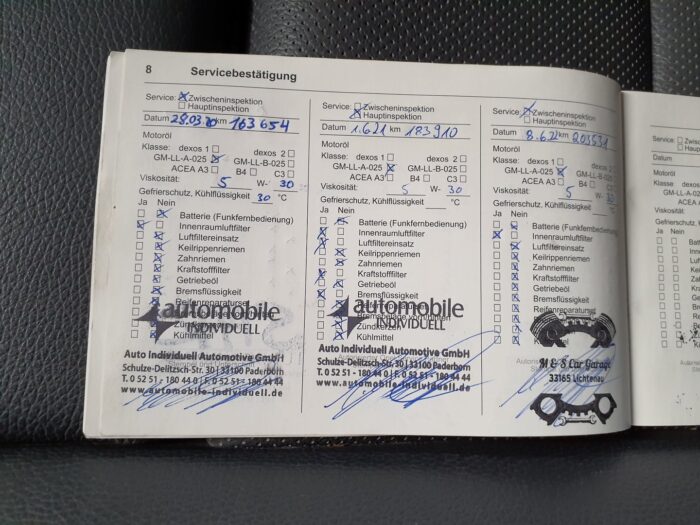 8 Servicebestätigung
Service: Zwischeninspektion
Hauptinspektion
Datum 28.03.20 km 163 654
Motoröl
Klasse: dexos 1 dexos 2
GM-LL-A-025 GM-LL-B-025
ACEA A3 B4 C3
Viskosität: 5 W- 30
Gefrierschutz, Kühlflüssigkeit 30 °C
Ja Nein
Batterie (Funkfernbedienung)
Innenraumluftfilter
Luftfiltereinsatz
Keilrippenriemen
Zahnriemen
Kraftstofffilter
Getriebeöl
Bremsflüssigkeit
Reifenreparaturset
automobile
INDIVIDUELL
Zündkerzen
Kühlmittel
Auto Individuell Automotive GmbH
Schulze-Delitzsch-Str. 30 | 33100 Paderborn
T. 0 52 51 - 180 44 0 | F. 0 52 51 - 180 44 44
www.automobile-individuell.de
Service: Zwischeninspektion
Hauptinspektion
Datum 1.6.21 km 183910
Motoröl
Klasse: dexos 1 dexos 2
GM-LL-A-025 GM-LL-B-025
ACEA A3 B4 C3
Viskosität: 5 W- 30
Gefrierschutz, Kühlflüssigkeit °C
Ja Nein
Batterie (Funkfernbedienung)
Innenraumluftfilter
Luftfiltereinsatz
Keilrippenriemen
Zahnriemen
Kraftstofffilter
Getriebeöl
Bremsflüssigkeit
automobile
INDIVIDUELL
Zündkerzen
Kühlmittel
Auto Individuell Automotive GmbH
Schulze-Delitzsch-Str. 30 | 33100 Paderborn
T. 0 52 51 - 180 44 0 | F. 0 52 51 - 180 44 44
www.automobile-individuell.de
Service: Zwischeninspektion
Hauptinspektion
Datum 8.6.22 km 203531
Motoröl
Klasse: dexos 1 dexos 2
GM-LL-A-025 GM-LL-B-025
ACEA A3 B4 C3
Viskosität: 5 W- 30
Gefrierschutz, Kühlflüssigkeit °C
Ja Nein
Batterie (Funkfernbedienung)
Innenraumluftfilter
Luftfiltereinsatz
Keilrippenriemen
Zahnriemen
Kraftstofffilter
Getriebeöl
Bremsflüssigkeit
Reifenreparaturset
M & S Car Garage
33165 Lichtenau
Service:
Datum
Motoröl
Klasse: dexos 1
GM-LL-A-025
ACEA A3
Viskosität:
Gefrierschutz,
Ja Nein